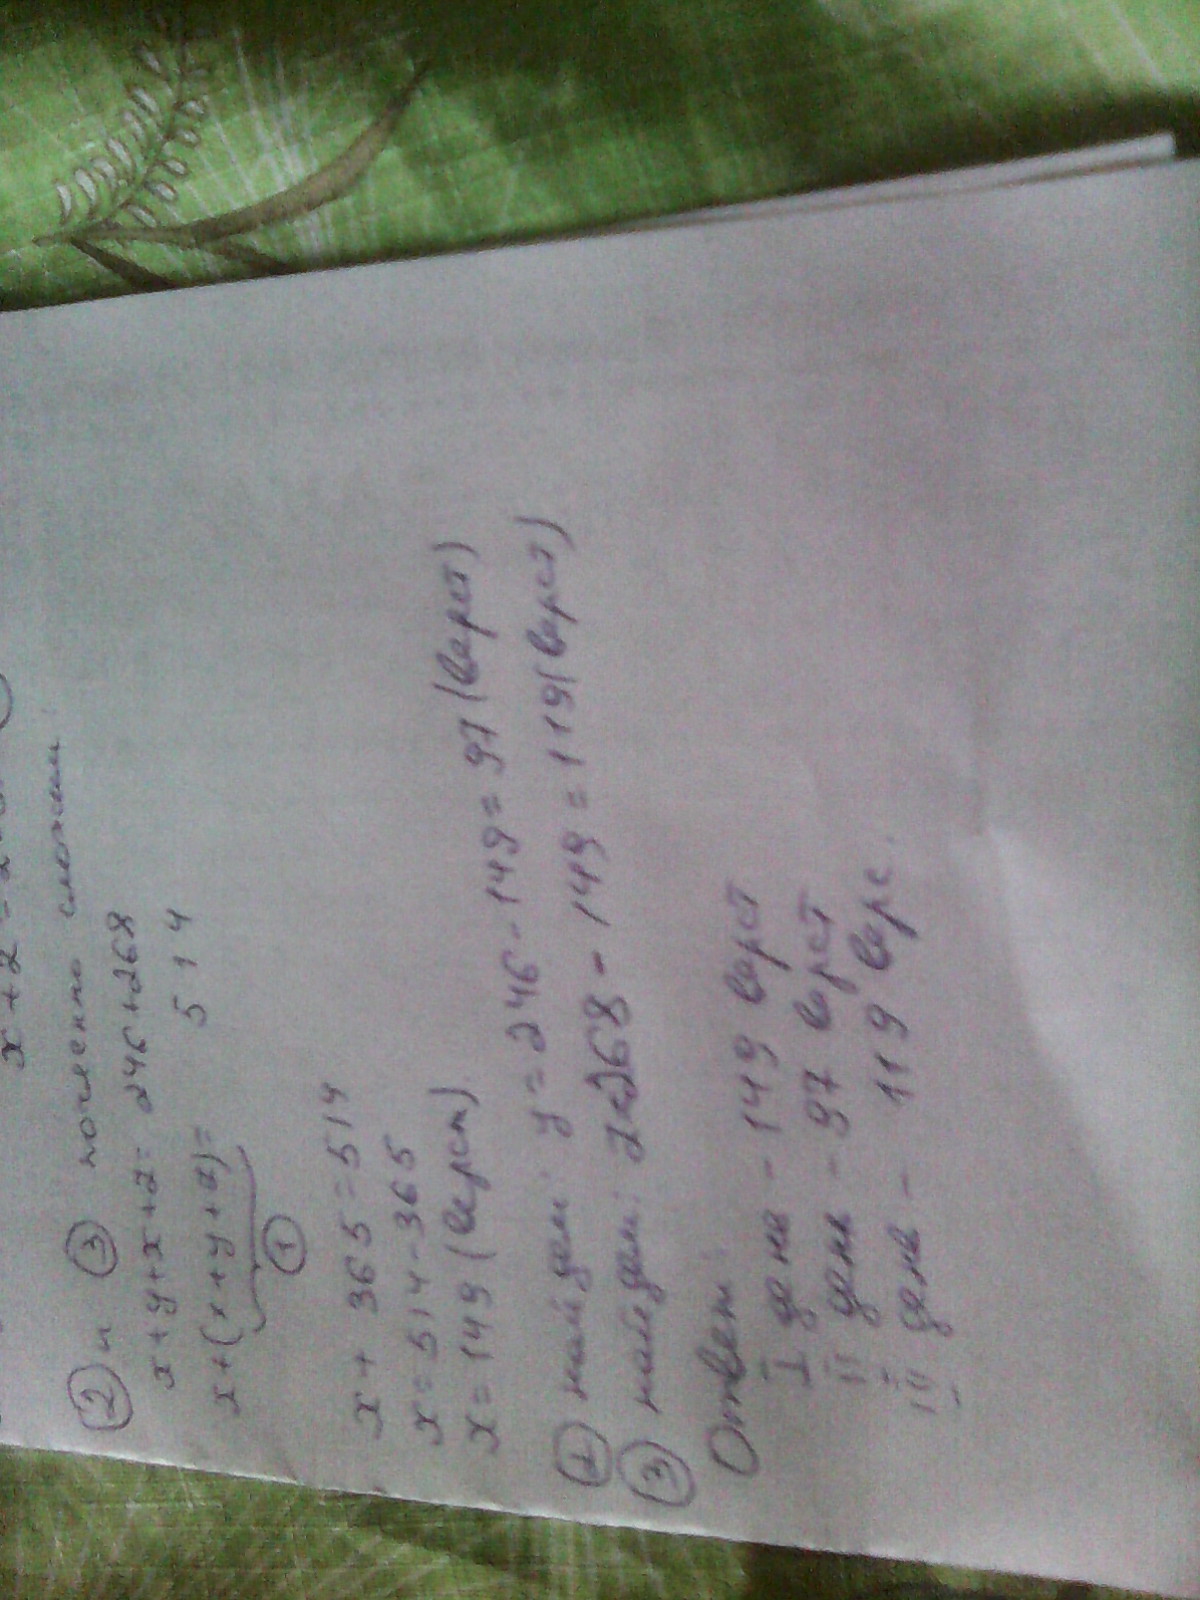 x + z = 2
② и ③ почленно сложим:
x+y+x+z= 246+268
x+(x+y+z)= 514
①
x+ 365=514
x=514-365
x=149 (верст).
② найдем: y=246-149=97(верст)
③ найдем: z=268-149=119(верст)
Ответ:
I день - 149 верст
II день - 97 верст
III день - 119 верс.